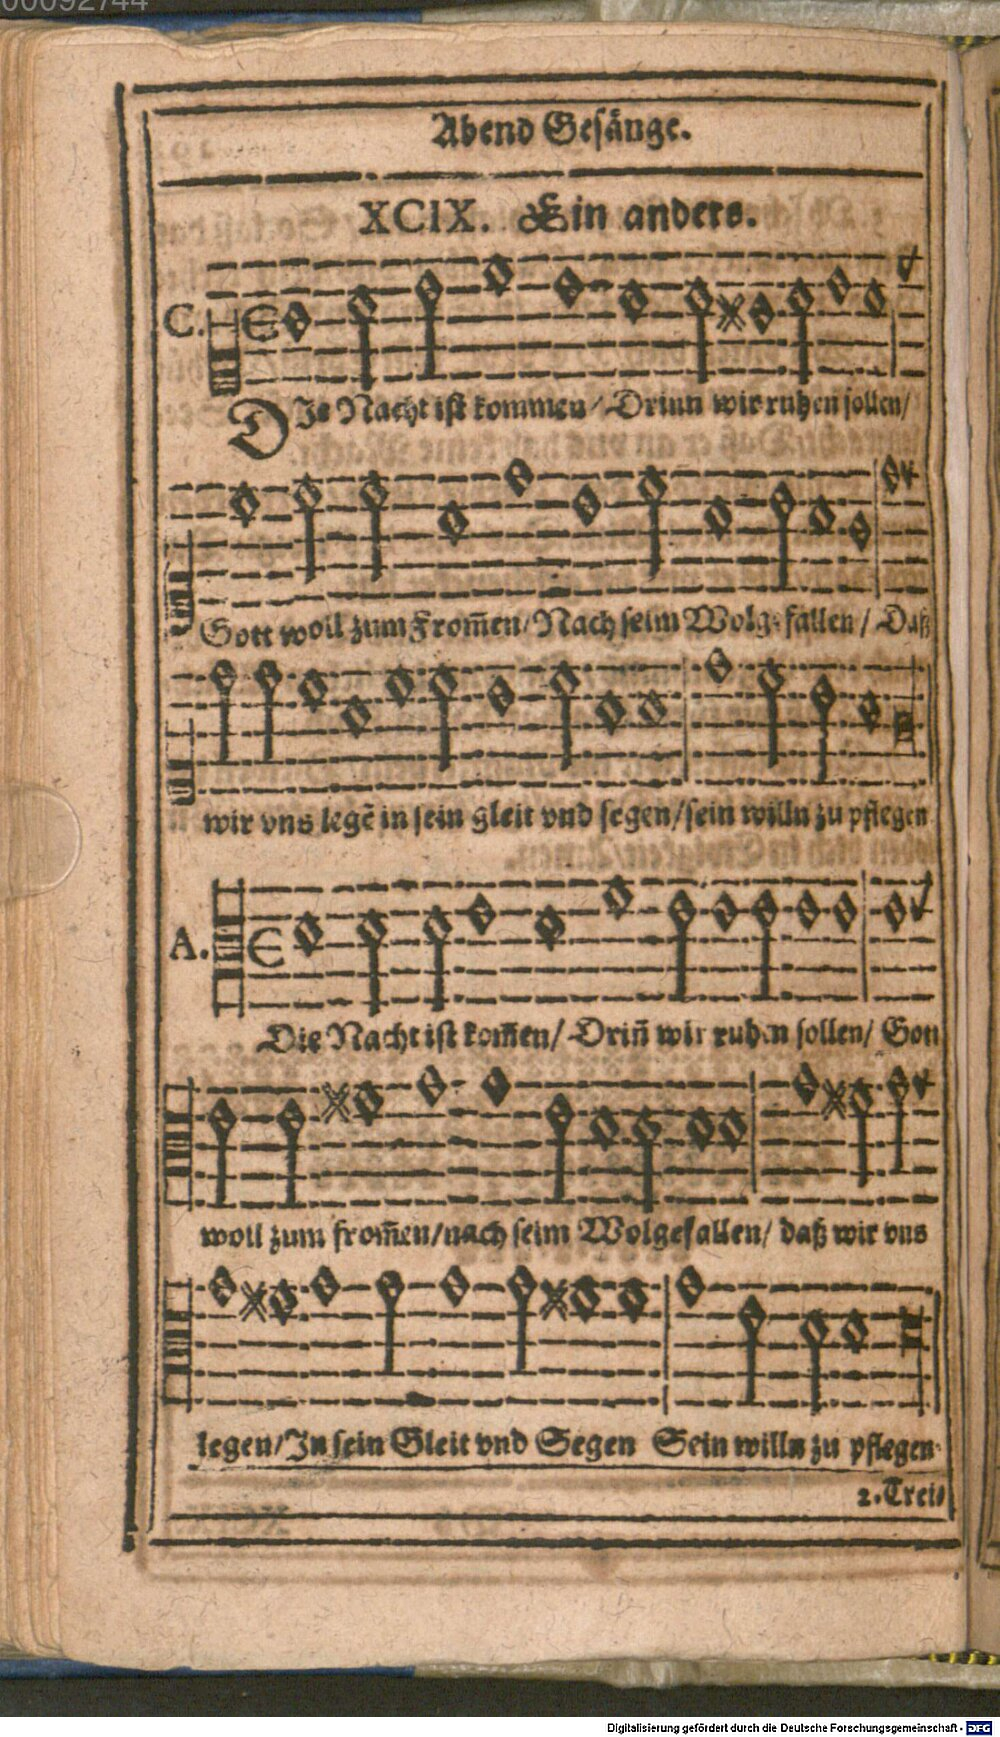 00092744
Abend Gesänge.
XCIX. Ein anders.
C.
DIe Nacht ist kommen / Drinn wir ruhen sollen /
Gott woll zum From̃en / Nach seim Wolgefallen / Daß
wir vns legẽ in sein gleit vnd segen / sein willn zu pflegen
A.
Die Nacht ist kom̃en / Driñ wir ruhen sollen / Gott
woll zum from̃en / nach seim Wolgefallen / daß wir vns
legen / In sein Gleit vnd Segen Sein willn zu pflegen.
2. Trei⸗
Digitalisierung gefördert durch die Deutsche Forschungsgemeinschaft - DFG